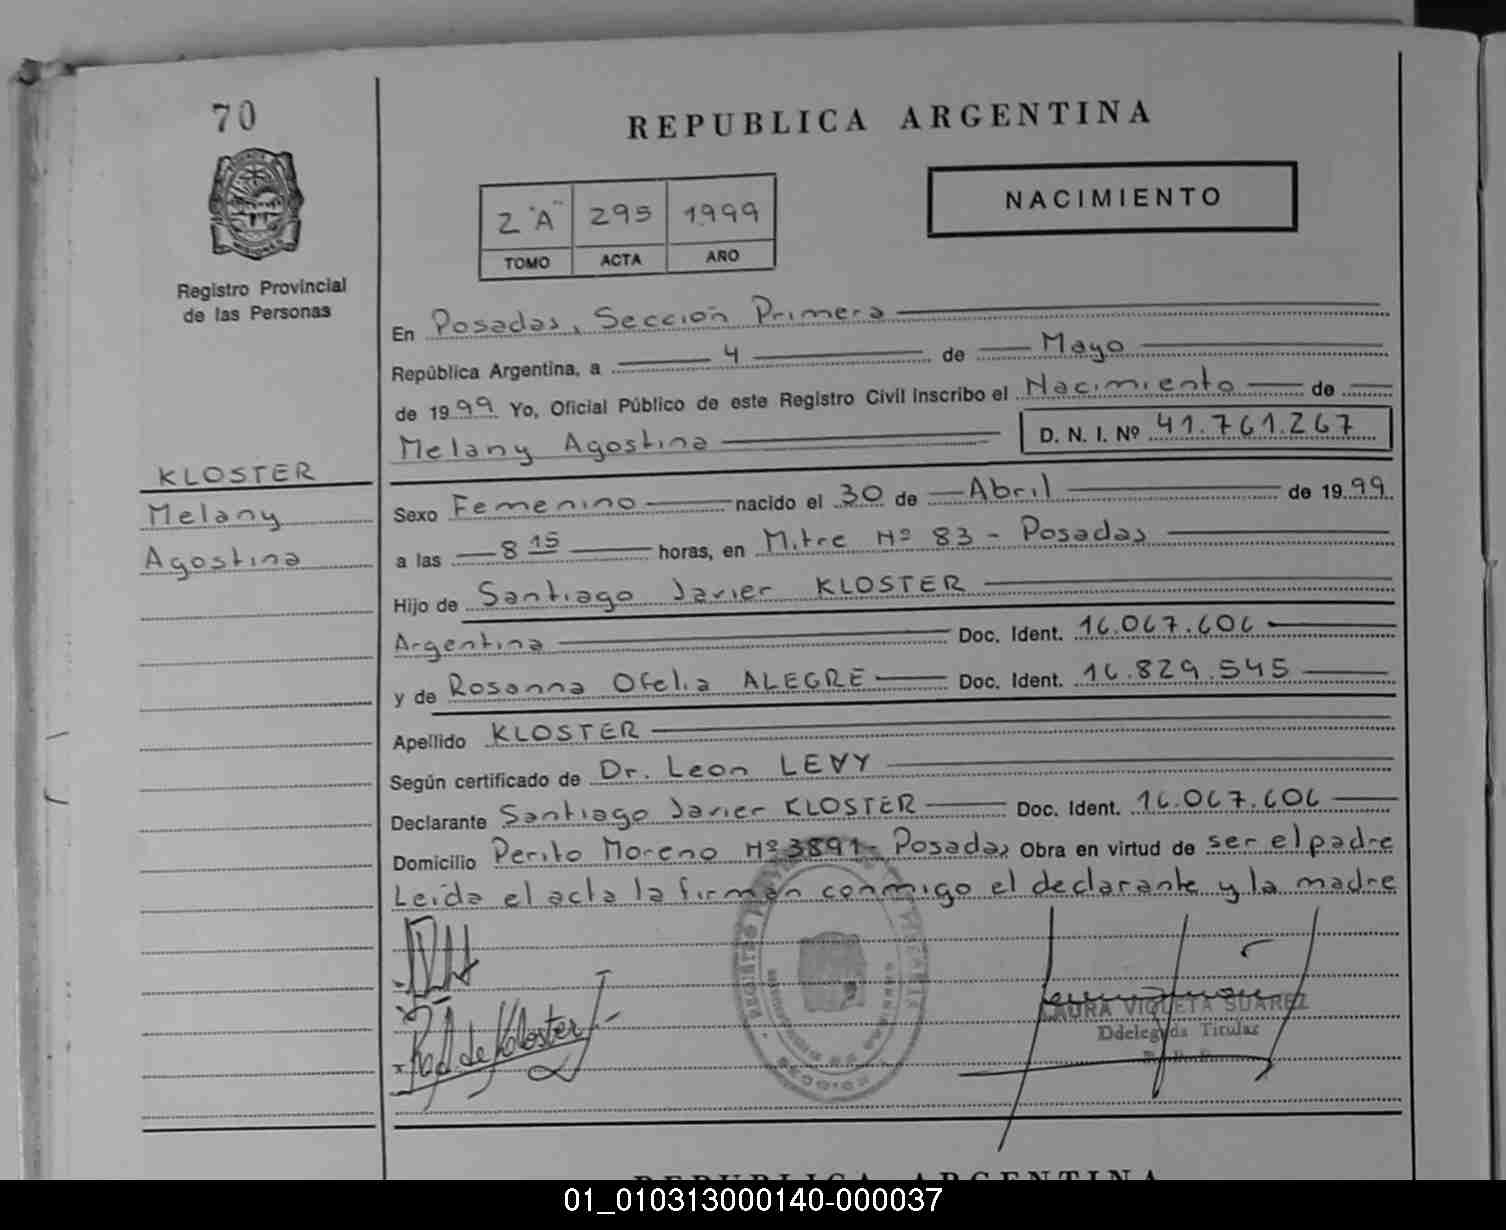 70
REPUBLICA ARGENTINA
NACIMIENTO
2 "A" 295 1999
TOMO ACTA AÑO
Registro Provincial
de las Personas
En Posadas, Sección Primera
República Argentina, a 4 de Mayo
de 1999 Yo, Oficial Público de este Registro Civil inscribo el Nacimiento de
Melany Agostina D. N. I. Nº 41.761.267
KLOSTER
Melany
Agostina
Sexo Femenino nacido el 30 de Abril de 1999
a las 8 15 horas, en Mitre Nº 83 - Posadas
Hijo de Santiago Javier KLOSTER
Argentina Doc. Ident. 16.067.606
y de Rosanna Ofelia ALEGRE Doc. Ident. 16.829.545
Apellido KLOSTER
Según certificado de Dr. Leon LEVY
Declarante Santiago Javier KLOSTER Doc. Ident. 16.067.606
Domicilio Perito Moreno Nº 3891 - Posadas Obra en virtud de ser el padre
Leida el acta la firman conmigo el declarante y la madre
de Kloster
LAURA VIOLETA SUAREZ
Ddelegada Titular
REPUBLICA ARGENTINA
01_010313000140-000037